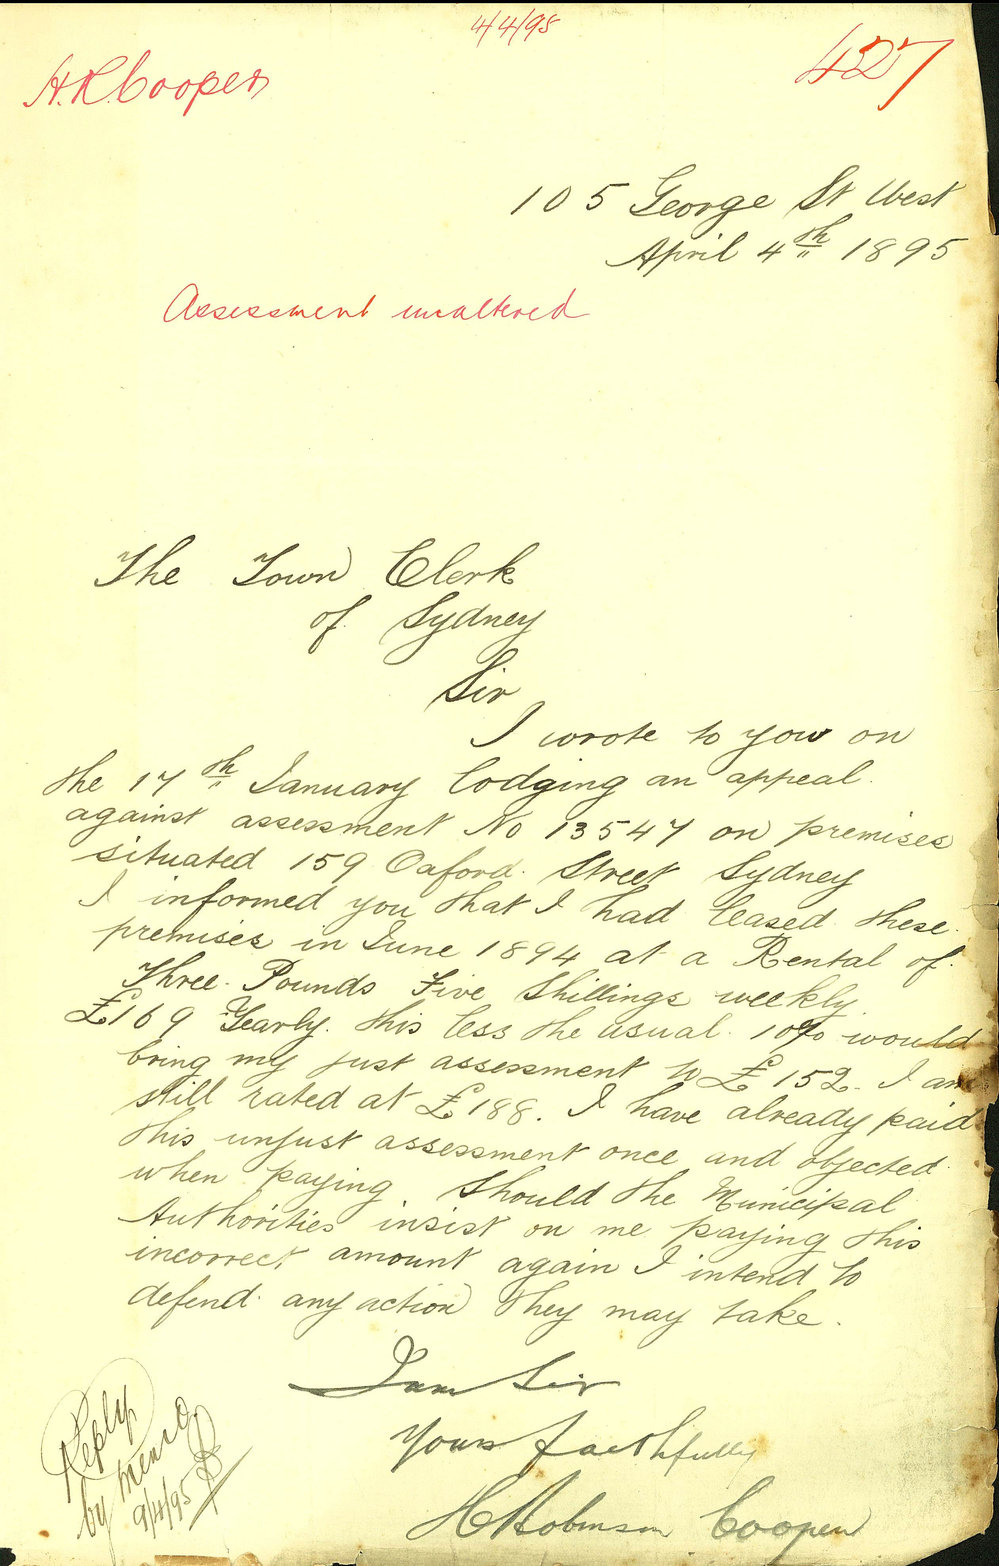 4/4/95
H. R. Cooper
427
105 George St West
April 4th 1895
Assessment unaltered
The Town Clerk
of Sydney
Sir
I wrote to you on
the 17th January lodging an appeal
against assessment No 13547 on premises
situated 159 Oxford Street Sydney
I informed you that I had leased these
premises in June 1894 at a Rental of
Three Pounds Five Shillings weekly
£169 Yearly. this less the usual 10% would
bring my just assessment to £152. I am
still rated at £188. I have already paid
this unjust assessment once and objected
when paying. Should the Municipal
Authorities insist on me paying this
incorrect amount again I intend to
defend any action they may take.
I am Sir
Yours faithfully
H Robinson Cooper
Reply
by memo
9/4/95